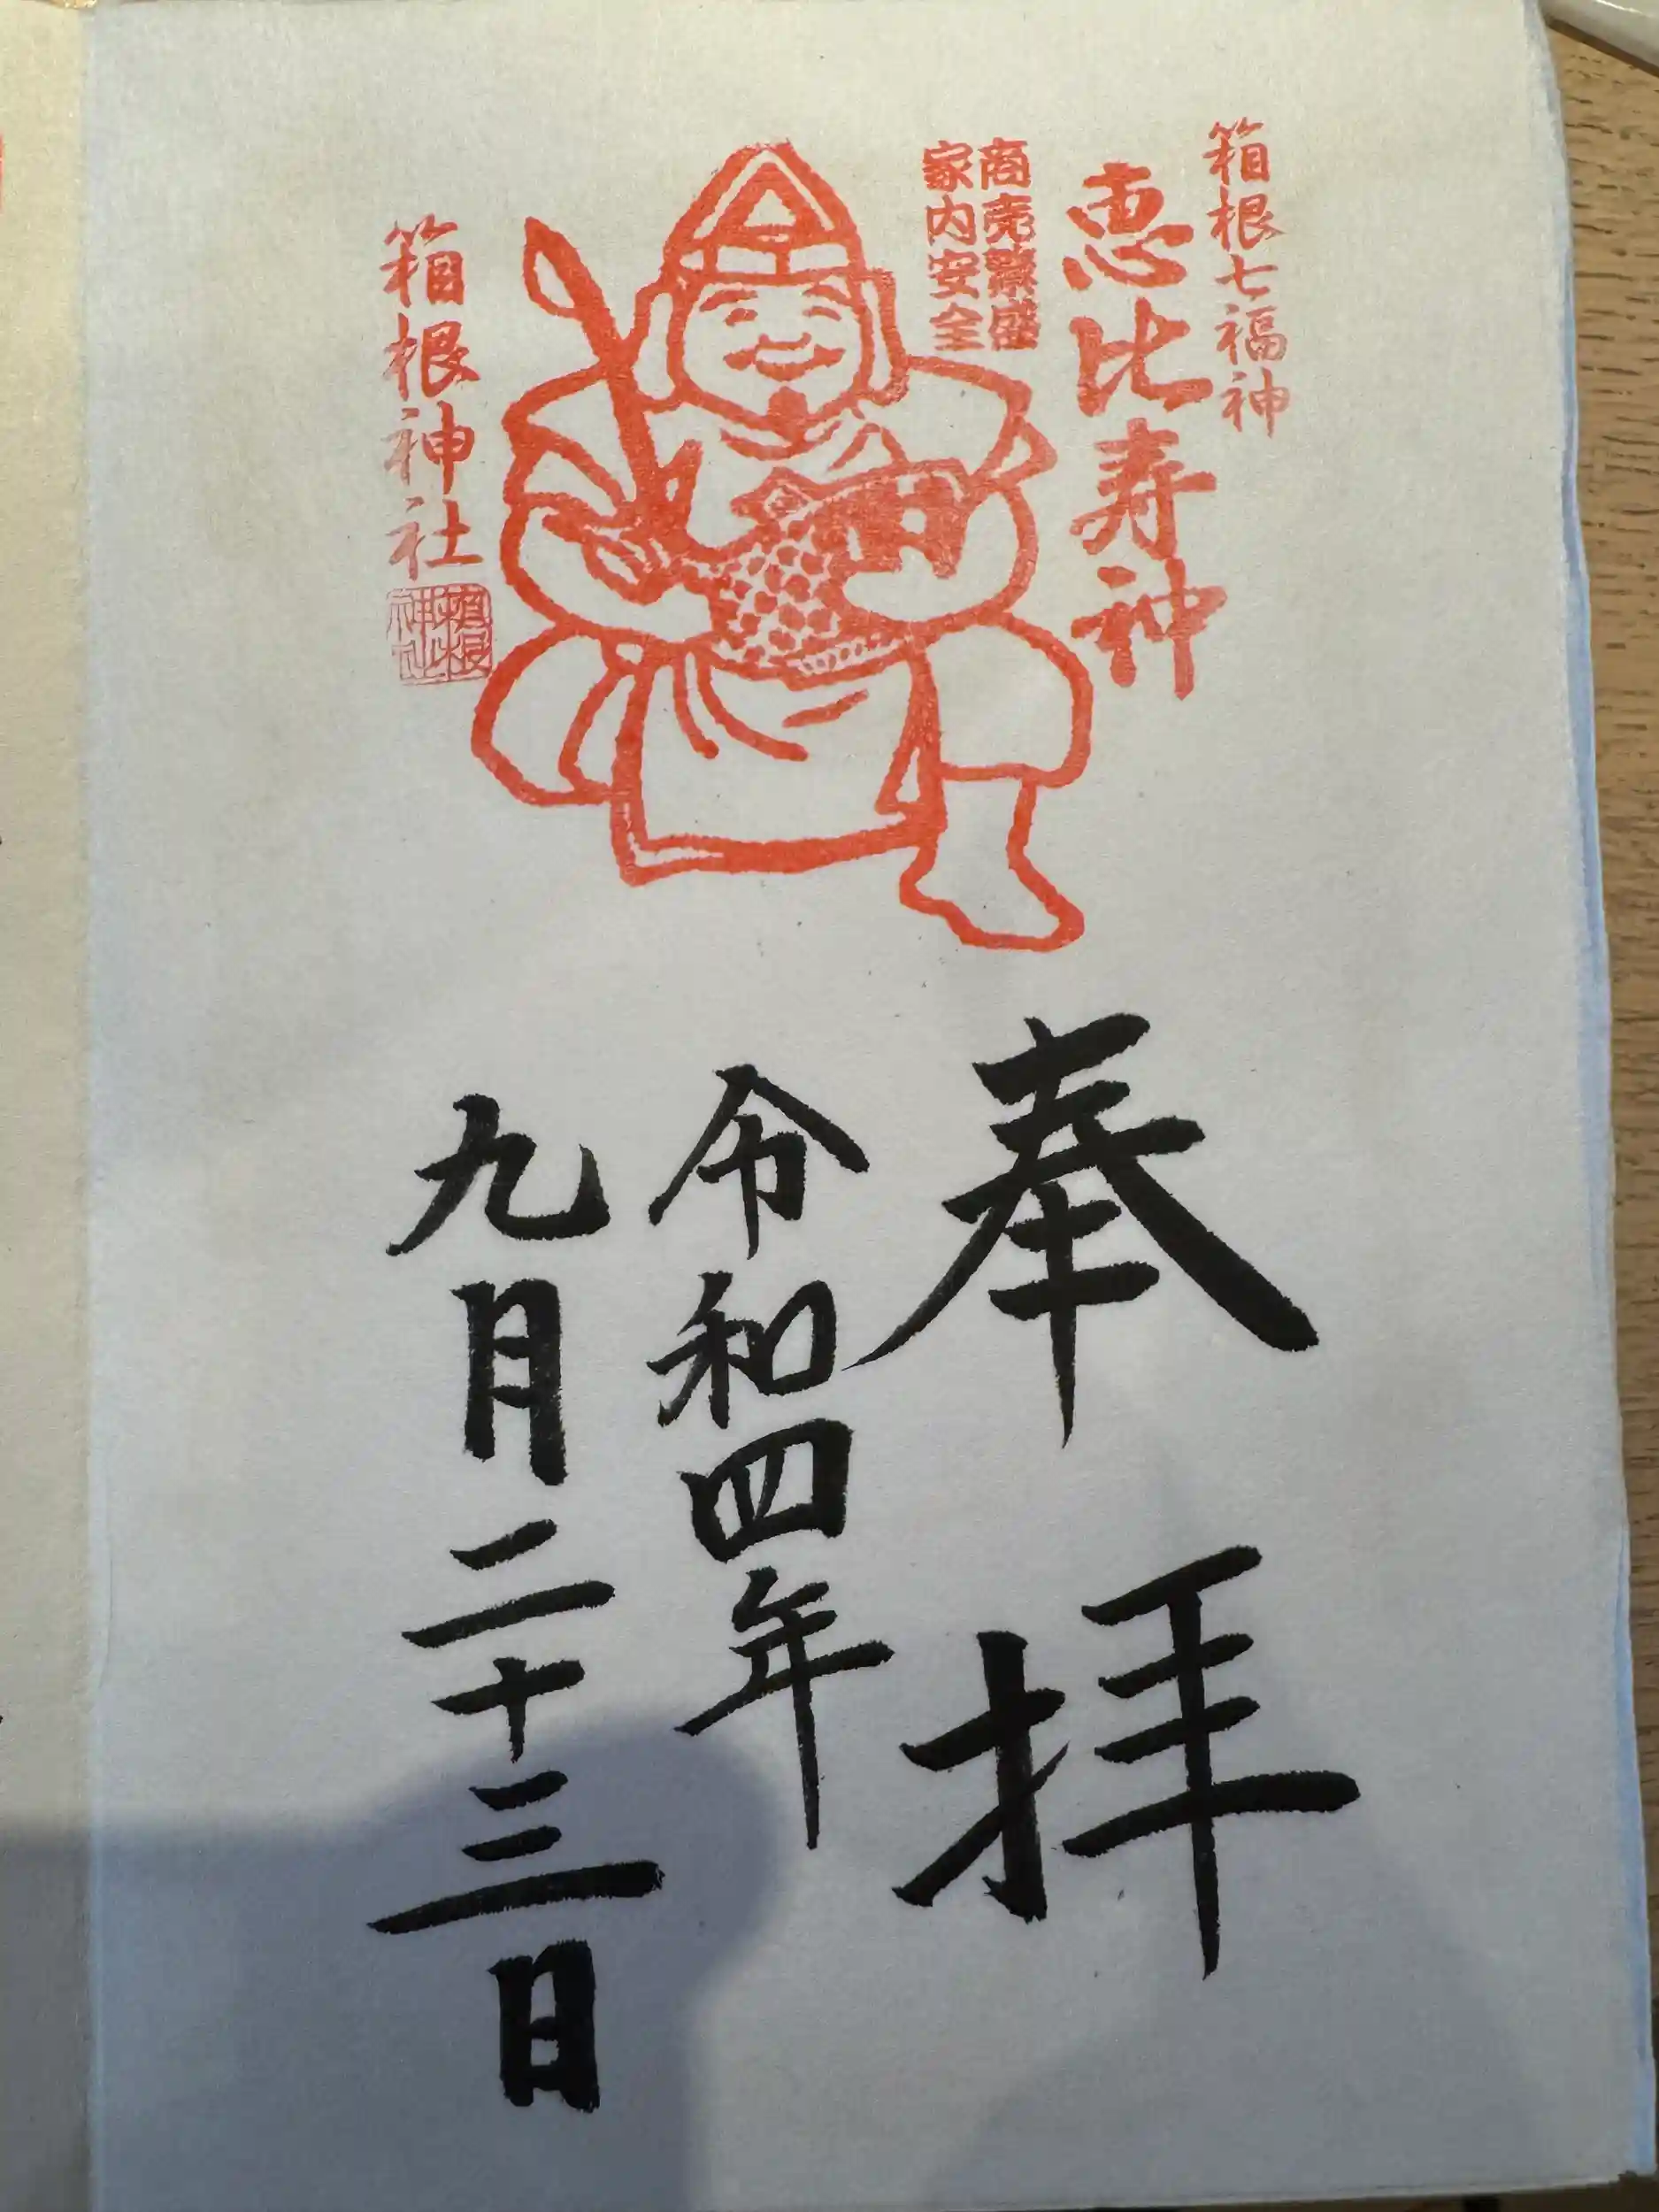 箱根七福神
恵比寿神
商売繁盛
家内安全
箱根神社
奉拝
令和四年
九月二十三日